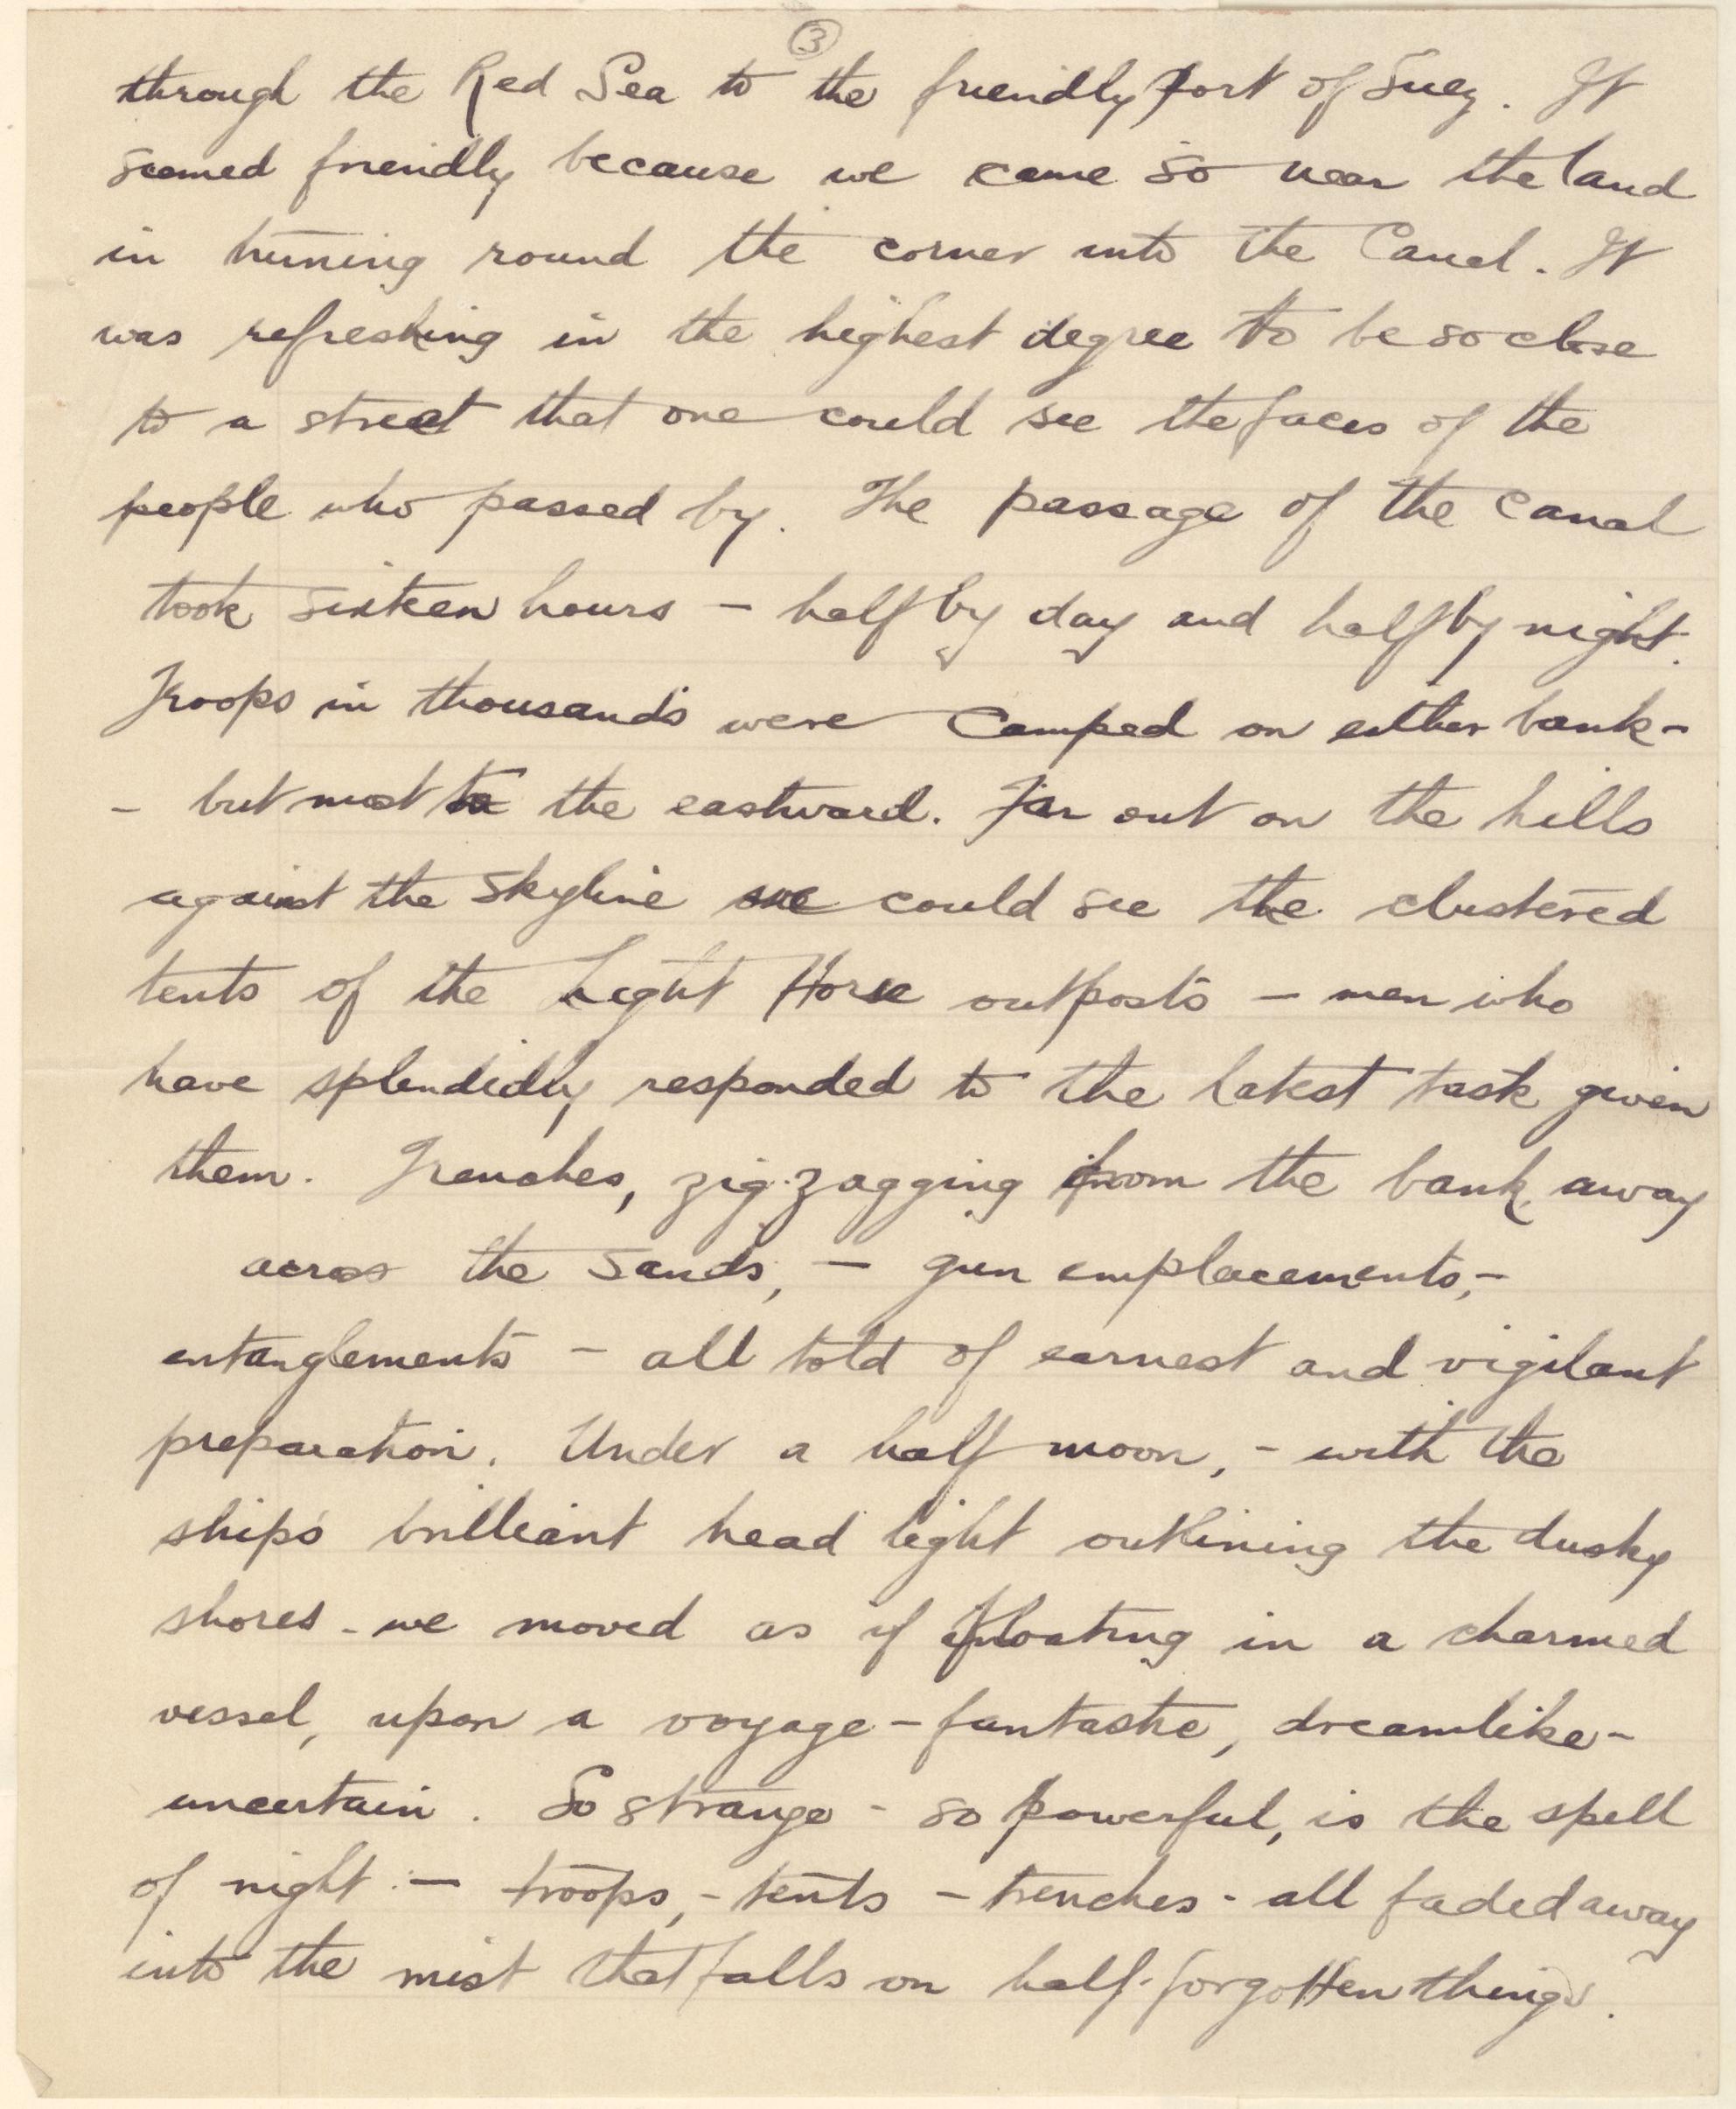 ③
through the Red Sea to the friendly port of Suez. It
seemed friendly because we came so near the land
in turning round the corner into the Canal. It
was refreshing in the highest degree to be so close
to a street that one could see the faces of the
people who passed by. The passage of the Canal
took sixteen hours - half by day and half by night.
Troops in thousands were camped on either bank -
- but most to the eastward. Far out on the hills
against the skyline we could see the clustered
tents of the Light Horse outposts - men who
have splendidly responded to the latest task given
them. Trenches, zig-zagging from the bank away
across the sands, - gun emplacements, -
entanglements - all told of earnest and vigilant
preparation. Under a half moon, - with the
ship's brilliant head light outlining the dusky
shores - we moved as if floating in a charmed
vessel, upon a voyage - fantastic, dreamlike -
uncertain. So strange - so powerful, is the spell
of night :- troops, - tents - trenches - all faded away
into the mist that falls on half-forgotten things.